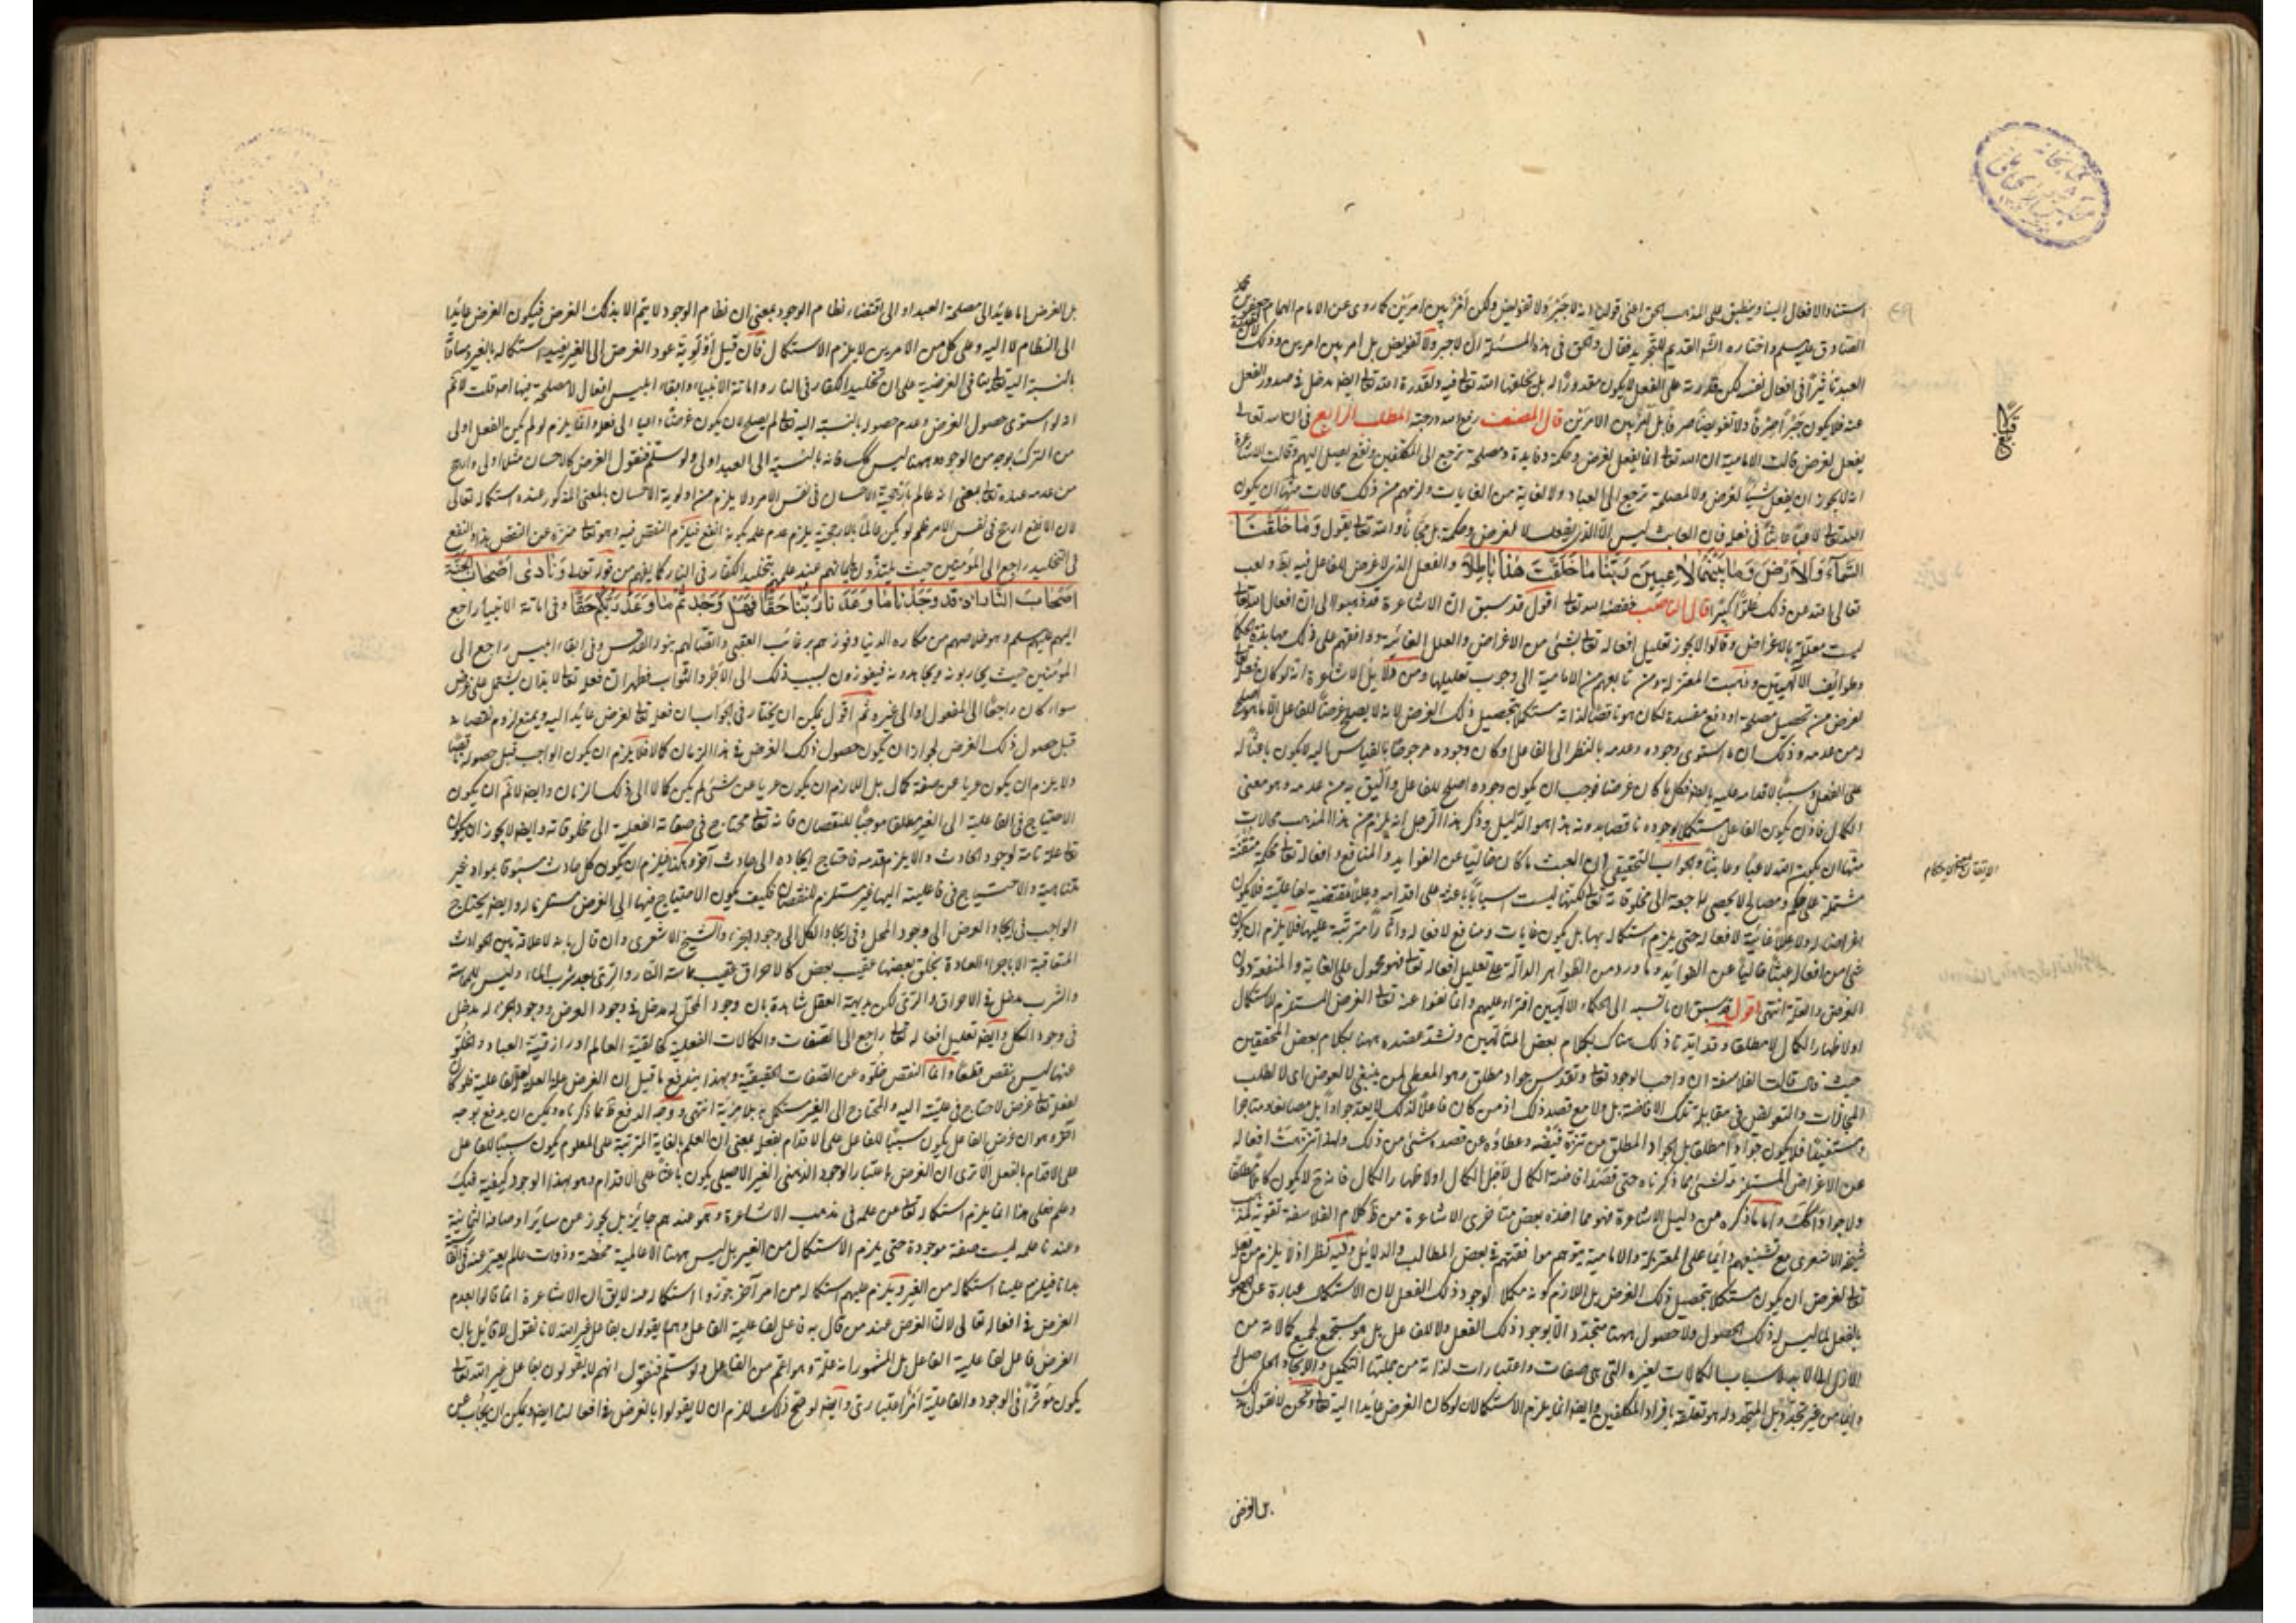 استناد الافعال الينا وينطبق على المذهب الحق اعنى قولنا انه لا جبر ولا تفويض ولكن امر بين امرين كما روى عن الامام الهمام جعفر بن محمد
الصادق عليه سلم واختاره الشارح القديم للتجريد فقال والحق فى هذه المسئلة ان لا جبر ولا تفويض بل امر بين امرين وذلك لان لقدرة
العبد تاثيرا فى افعال نفسه لكن قدرته على الفعل لا يكون مقدورا له بل يخلقها الله تعالى فيه ولقدرة الله تعالى ايضا مدخل فى صدور الفعل
عنه فلا يكون جبرا صرفا ولا تفويضا صرفا بل امر بين الامرين قال المصنف رفع الله درجته المطلب الرابع فى ان الله تعالى
يفعل لغرض قالت الامامية ان الله تعالى انما يفعل لغرض وحكمة وفايدة ومصلحة ترجع الى المكلفين ونفع يصل اليهم وقالت الاشاعرة
انه لا يجوز ان يفعل شيئا لغرض ولا لمصلحة ترجع الى العباد ولا لغاية من الغايات ولزمهم من ذلك محالات منها ان يكون
الله تعالى لاعبا عابثا فى فعله فان العابث ليس الا الذى يفعل لا لغرض وحكمة بل مجانا والله تعالى يقول وما خلقنا
السماء والارض وما بينهما لاعبين ربنا ما خلقت هذا باطلا والفعل الذى لا غرض للفاعل فيه باطل ولعب
تعالى الله عن ذلك علوا كبيرا قال الناصب خفضه الله تعالى اقول قد سبق ان الاشاعرة ذهبوا الى ان افعال الله تعالى
ليست معللة بالاغراض وقالوا لا يجوز تعليل افعاله تعالى بشئ من الاغراض والعلل الغائية ووافقهم على ذلك جهابذة الحكماء
وطوايف الالهيين وذهبت المعتزلة ومن تابعهم من الامامية الى وجوب تعليلها ومن دلايل الاشاعرة انه لو كان فعله تعالى
لغرض من تحصيل مصلحة او دفع مفسدة لكان هو ناقصا لذاته مستكملا بتحصيل ذلك الغرض لانه لا يصلح غرضا للفاعل الا ما هو اصلح
له من عدمه وذلك ان ما استوى وجوده وعدمه بالنظر الى الفاعل او كان وجوده مرجوحا بالقياس اليه لا يكون باعثا له
على الفعل وسببا لاقدامه عليه بالضرورة فكل ما كان غرضا فوجب ان يكون وجوده اصلح للفاعل واليق به من عدمه وهو معنى
الكمال فاذن يكون الفاعل مستكملا بوجوده ناقصا بدونه هذا هو الدليل وذكر هذا الرجل انه يلزم من هذا المذهب محالات
منها ان يكون الله لاعبا وعابثا والجواب التحقيقى ان العبث ما كان خاليا عن الفوايد والمنافع وافعاله تعالى محكمة متقنة
مشتملة على حكم ومصالح لا يحصى راجعة الى مخلوقاته تعالى لكنها ليست اسبابا باعثة على اقدامه وعللا مقتضية لفاعليته فلا يكون
اغراضا له ولا عللا غائية لافعاله حتى يلزم استكماله بها بل يكون غايات ومنافع لافعاله وآثارا مترتبة عليها فلا يلزم ان يكون
شئ من افعاله عبثا خاليا عن الفوايد وما ورد من الظواهر الدالة على تعليل افعاله تعالى فهو محمول على الغاية والمنفعة دون
الغرض والعلة انتهى اقول قد سبق ان ما نسبه الى الحكماء الالهيين افتراء عليهم وانما نفوا عنه تعالى الغرض المستلزم للاستكمال
او لاظهار الكمال لا مطلقا وقد ايدنا ذلك هناك بكلام بعض المتالهين ونشد عضده ههنا بكلام بعض المحققين
حيث قال قالت الفلاسفة ان واجب الوجود تعالى وتقدس جواد مطلق وهو المعطى لمن ينبغى لا لعوض اى لا لطلب
عن الاغراض المستلزمة لشئ مما ذكرناه حتى قصد افاضة الكمال لاجل الكمال او لاظهار الكمال فانه ح لا يكون كاملا مطلقا
ولا جوادا كك واما ما ذكره من دليل الاشاعرة فهو مما اخذه بعض متاخرى الاشاعرة من كلام الفلاسفة تقوية لمذهب
شيخه الاشعرى مع تشنيعهم دائما على المعتزلة والامامية بتوهم موافقتهم فى بعض المطالب والدلائل وفيه نظر اذ لا يلزم من فعله
تعالى لغرض ان يكون مستكملا بتحصيل ذلك الغرض بل اللازم كونه مكملا لوجود ذلك الفعل لان الاستكمال عبارة عن
بالفعل لما ليس له ذلك الحصول ولا حصول ههنا متجدد الا بوجود ذلك الفعل ولا للفاعل بل هو مستجمع لجميع كمالاته من
الازل الى الابد
وانما من غير تجدد بل المتجدد له هو تعلقه بافراد المكلفين وايضا انما يلزم الاستكمال لو كان الغرض عايدا اليه تعالى ونحن لا نقول به
بل الغرض
الاتقان الاحكام
بل الغرض اما عايد الى مصلحة العبد او الى اقتضاء نظام الوجود بمعنى ان نظام الوجود لا يتم الا بذلك الغرض فيكون الغرض عايدا
الى النظام لا اليه وعلى كل من الامرين لا يلزم الاستكمال فان قيل اولوية عود الغرض الى الغير يفيد استكماله بالغير ومساواته
بالنسبة اليه تعالى ينافى الغرضية على ان تخليد الكفار فى النار واماتة الانبياء وابقاء ابليس افعال لا مصلحة فيها اصلا قلت لا نم
انه لو استوى حصول الغرض وعدم حصوله بالنسبة اليه تعالى لم يصلح لان يكون غرضا داعيا الى فعله وانما يلزم لو لم يكن الفعل اولى
من الترك بوجه من الوجوه وههنا ليس كك فانه بالنسبة الى العبد اولى ولو سلم فنقول الغرض كالاحسان مثلا اولى وارجح
من عدمه عنده تعالى بمعنى انه عالم بارجحية الاحسان فى نفس الامر ولا يلزم من اولوية الاحسان بالمعنى المذكور عنده استكماله تعالى
لان الانفع ارجح فى نفس الامر فلو لم يكن عالما بالارجحية يلزم عدم علمه بكونه انفع فيلزم النقص فيه وهو تعالى منزه عن النقص هذا والنفع
فى التخليد راجع الى المؤمنين حيث يلتذون بايمانهم عند علمهم بتخليد الكفار فى النار كما يفهم من قوله تعالى ونادى اصحاب الجنة
اصحاب النار ان قد وجدنا ما وعدنا ربنا حقا فهل وجدتم ما وعد ربكم حقا وفى اماتة الانبياء راجع
اليهم عليهم سلم وهو خلاصهم من مكاره الدنيا وفوزهم برغائب العقبى واتصالهم بنور القدس وفى ابقاء ابليس راجع الى
المؤمنين حيث يحاربونه ويجاهدونه فيفوزون بسبب ذلك الى الاجر والثواب فظهر ان فعله تعالى لابد ان يشتمل على غرض
سواء كان راجعا الى المفعول او الى غيره ثم اقول يمكن ان يختار فى الجواب ان فعله تعالى لغرض عايد اليه ويمنع لزوم نقصانه
قبل حصول ذلك الغرض لجواز ان يكون حصول ذلك الغرض فى هذا الزمان كمالا فلا يلزم ان يكون الواجب قبل حصوله ناقصا
ولا يلزم ان يكون عريا عن صفة كمال بل اللازم ان يكون عريا عن شئ لم يكن كمالا الى ذلك الزمان وايضا لا نم ان يكون
الاحتياج فى الفاعلية الى الغير مطلقا موجبا للنقصان فانه تعالى محتاج فى صفاته الفعلية الى مخلوقاته وايضا لا يجوز ان يكون
تعالى علة تامة لوجود الحادث والا يلزم قدمه فاحتاج ايجاده الى حادث آخر وهكذا فيلزم ان يكون كل حادث مسبوقا بمواد غير
متناهية والاحتياج فى فاعليته اليها غير مستلزم للنقصان فكيف يكون الاحتياج فيها الى الغرض مستلزما له وايضا يحتاج
الواجب فى ايجاد العرض الى وجود المحل وفى ايجاد الكل الى وجود الجزء والشيخ الاشعرى وان قال بانه لا علاقة بين الحوادث
المتعاقبة الا باجراء العادة بخلق بعضها عقيب بعض كالاحراق عقيب مماسة النار والرى بعد شرب الماء وليس للمماسة
والشرب مدخل فى الاحراق والرى لكن بديهة العقل شاهدة بان وجود المحل له مدخل فى وجود العرض ووجود الجزء له مدخل
فى وجود الكل وايضا تعليل افعاله تعالى راجع الى الصفات والكمالات الفعلية كخالقية العالم ورازقية العباد والخلو
عنها ليس بنقص قطعا وانما النقص خلوه عن الصفات الحقيقية وبهذا يندفع ما قيل ان الغرض علة لعلية العلة الفاعلية فلو كان
لفعله تعالى غرض لاحتاج فى عليته اليه والمحتاج الى الغير مستكمل به بلا مزية انتهى ووجه الدفع ظ مما ذكرناه ويمكن ان يدفع بوجه
آخر وهو ان غرض الفاعل يكون سببا للفاعل على الاقدام بفعله بمعنى ان العلم بالغاية المترتبة على المعلوم يكون سببا للفاعل
على الاقدام بالفعل الا ترى ان الغرض باعتبار الوجود الذهنى الغير الاصيلى يكون باعثا على الاقدام وهو بهذا الوجود كيفية
وعلم فعلى هذا انما يلزم استكماله تعالى من علمه فى مذهب الاشاعرة وهو عندهم جايز بل يجوز عن سائر اوصافه الثمانية
وعندنا علمه ليست صفة موجودة حتى يلزم الاستكمال من الغير بل ليس ههنا الا عالمية محضة وذوات علم يعبر عنه
بدانا فيلزم علينا استكماله من الغير ويلزم عليهم استكماله من امر آخر جوزوا استكماله منه لا يق ان الاشاعرة انما قالوا بعدم
الغرض فى افعاله تعالى لان الغرض عند من قال به فاعل لفاعلية الفاعل وهم يقولون بفاعل غير الله لانا نقول لا قائل بان
الغرض فاعل لفاعلية الفاعل بل المشهور انه علة وهو اعم من الفاعل ولو سلم فنقول انهم لا يقولون بفاعل غير الله تعالى
يكون مؤثرا فى الوجود والفاعلية امر اعتبارى وايضا لو صح ذلك للزم ان لا يقولوا بالغرض فى افعالنا ايضا ويمكن ان يجاب عن